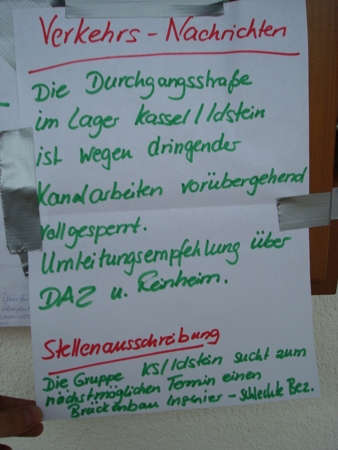 Verkehrs-Nachrichten
Die Durchgangsstraße
im Lager Kassel/Idstein
ist wegen dringender
Kanalarbeiten vorübergehend
vollgesperrt.
Umleitungsempfehlung über
DAZ u. Reinheim.
Stellenausschreibung
Die Gruppe KS/Idstein sucht zum
nächstmöglichen Termin einen
Brückenbau Ingenier - schlechte Bez.